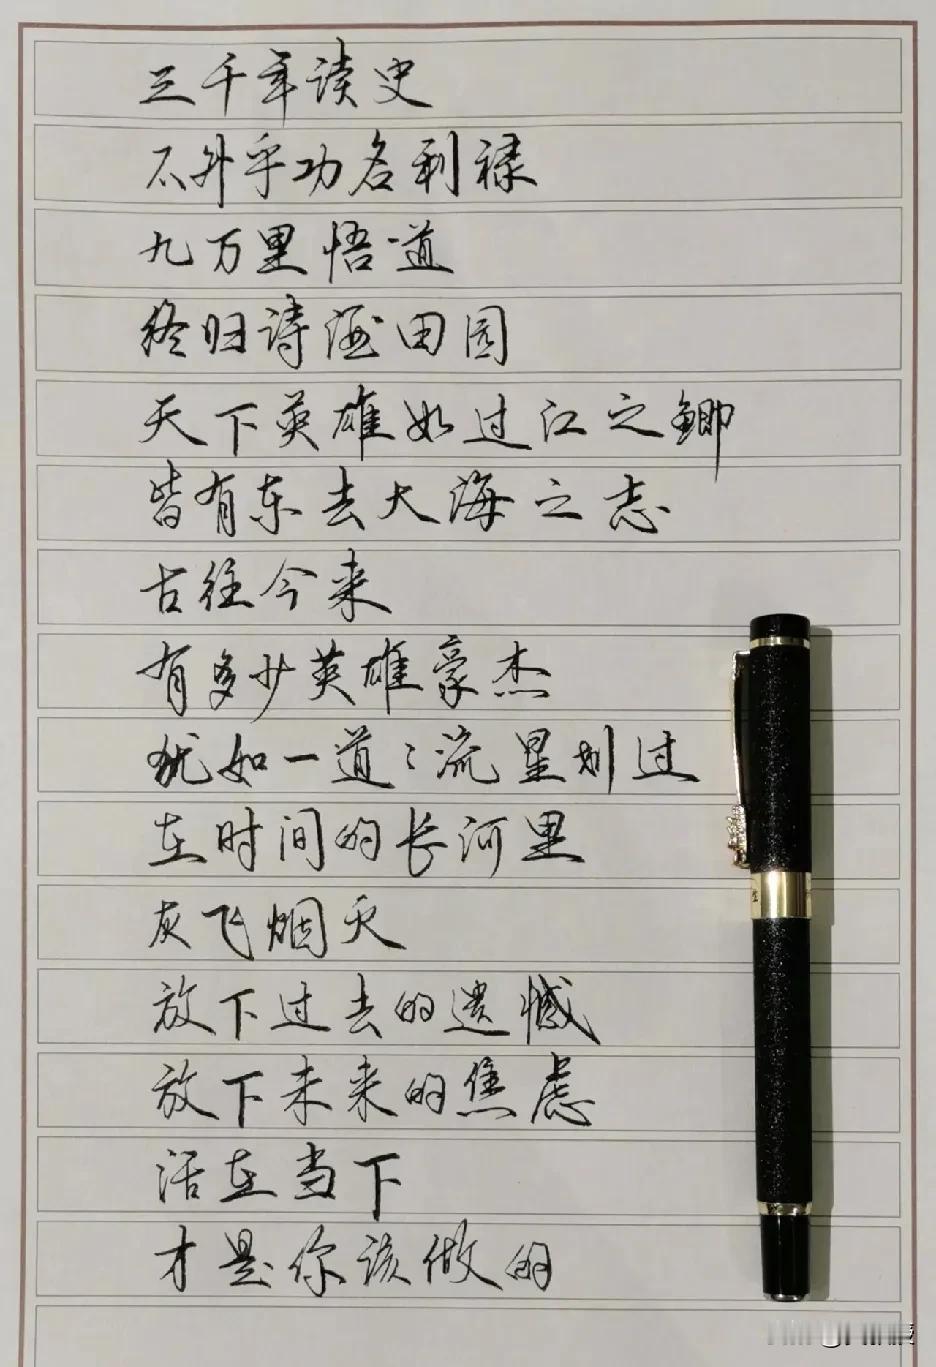 三千年读史
不外乎功名利禄
九万里悟道
终归诗酒田园
天下英雄如过江之鲫
皆有东去大海之志
古往今来
有多少英雄豪杰
犹如一道道流星划过
在时间的长河里
灰飞烟灭
放下过去的遗憾
放下未来的焦虑
活在当下
才是你该做的